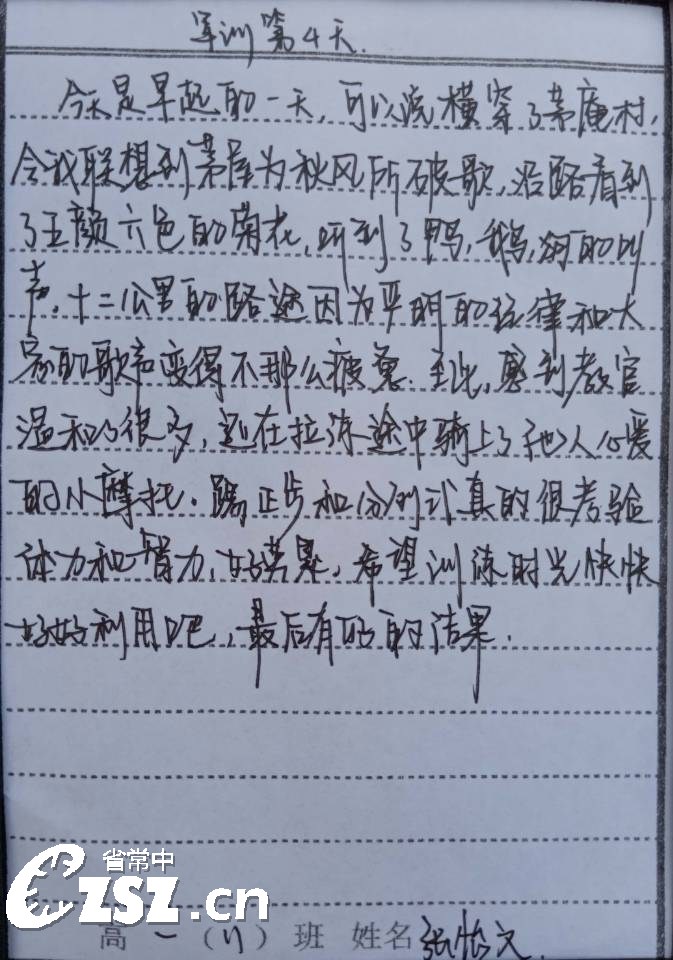 军训第4天.
今天是早起的一天,可以说横穿了茅庵村,
令我联想到茅屋为秋风所破歌,沿路看到
了五颜六色的菊花,听到了鸭,鹅,狗的叫
声,十二公里的路途因为严明的纪律和大
家的歌声变得不那么疲惫.至此,感到教官
温和了很多,还在拉练途中骑上了他人心爱
的小摩托.踢正步和分列式真的很考验
体力和智力,好累,希望训练时光快快
好好利用吧,最后有好的结果.
省常中
czsz.cn
高一(11)班 姓名张怡文.